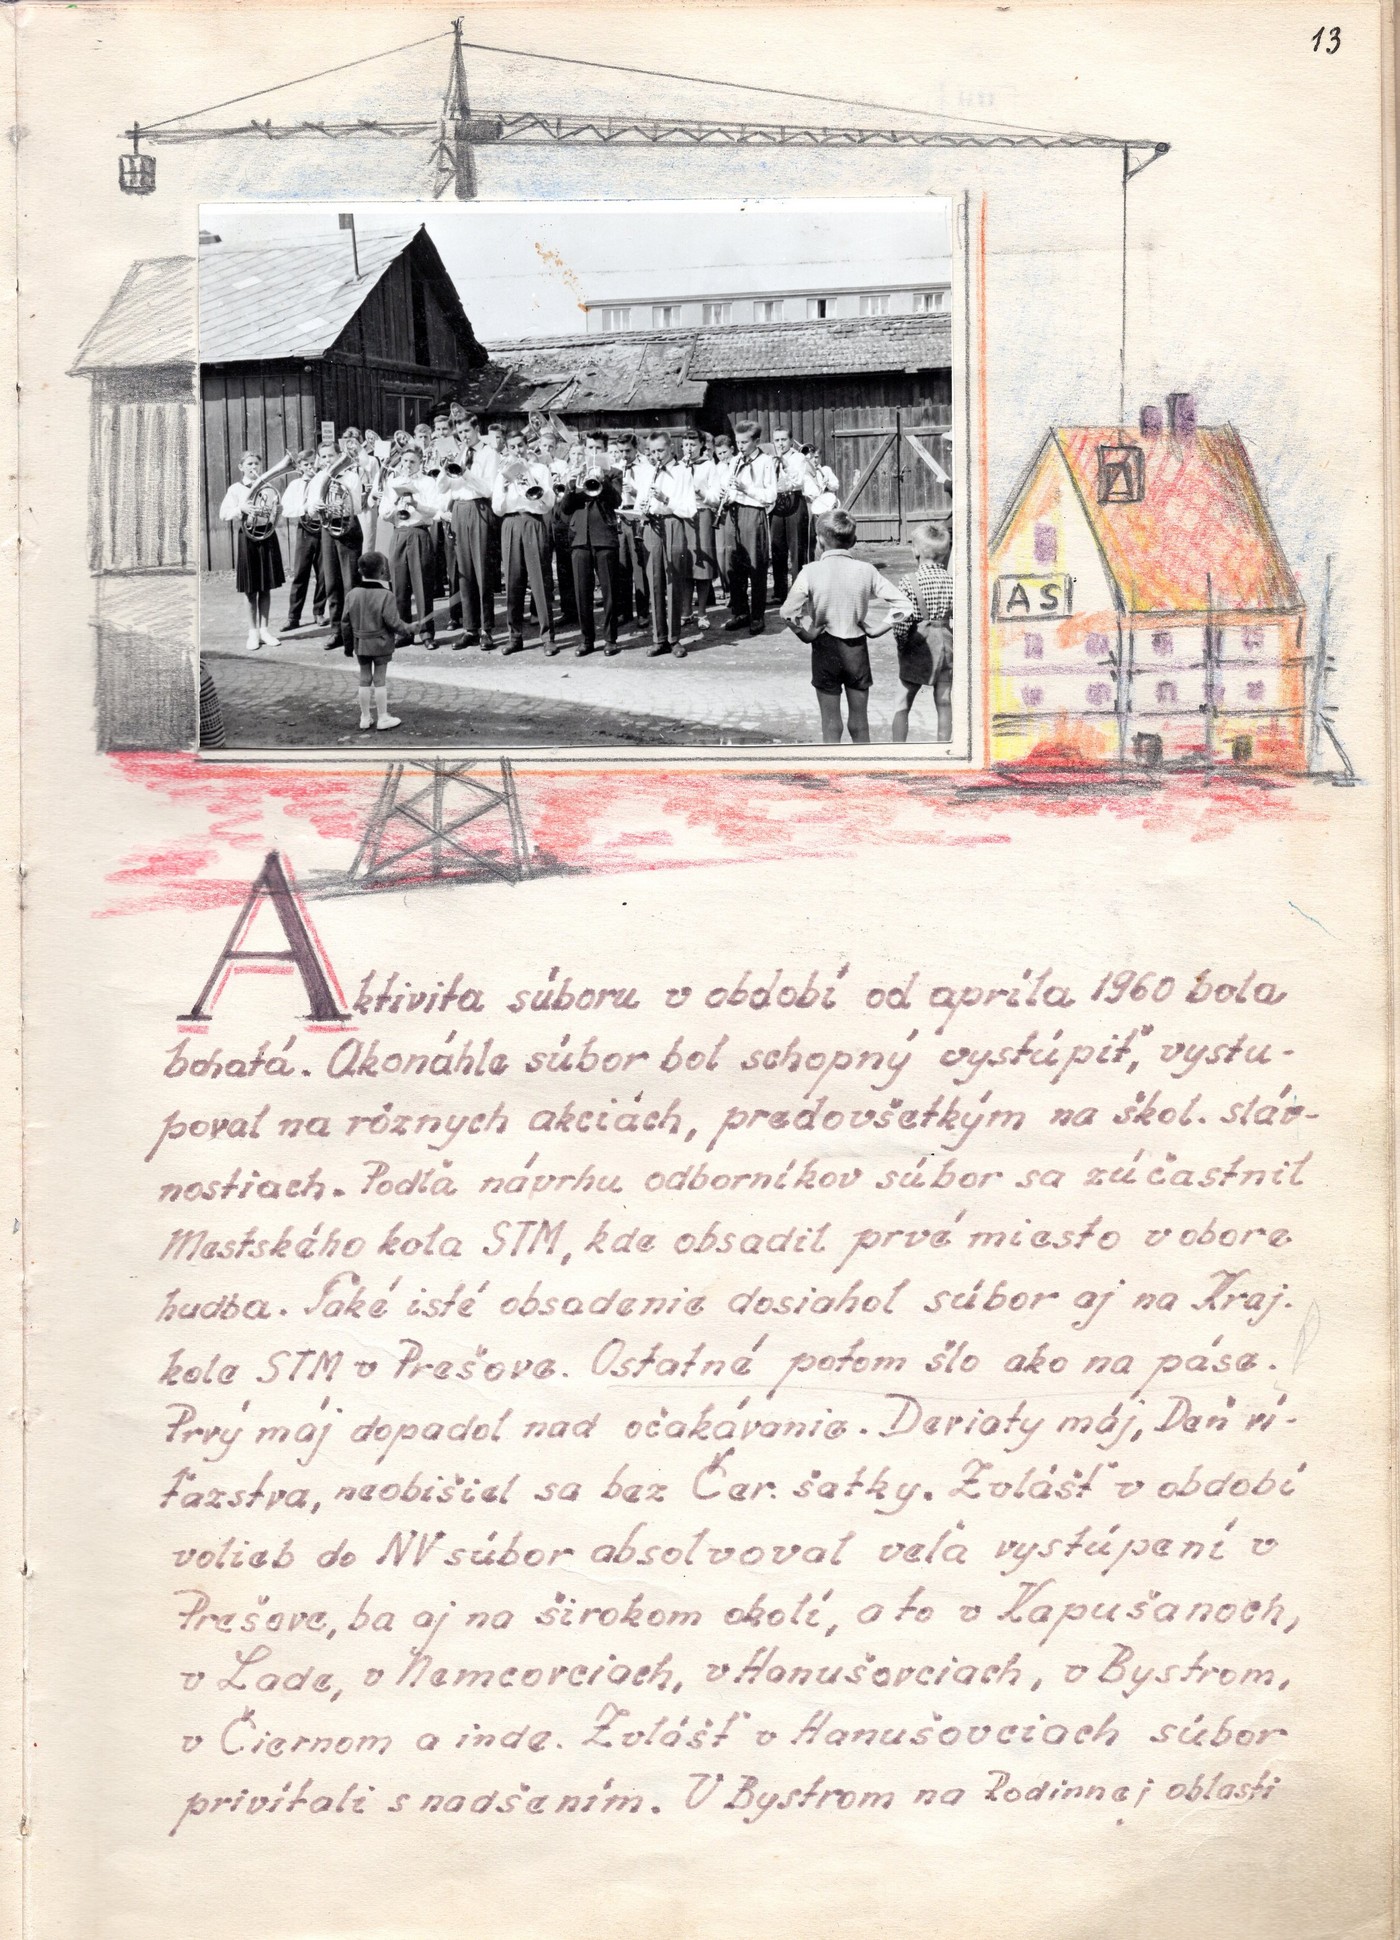 13
AS
Aktivita súboru v období od apríla 1960 bola
bohatá. Akonáhle súbor bol schopný vystúpiť, vystu-
poval na rôznych akciách, predovšetkým na škol. sláv-
nostiach. Podľa návrhu odborníkov súbor sa zúčastnil
Mestského kola STM, kde obsadil prvé miesto v obore
hudba. Také isté obsadenie dosiahol súbor aj na Kraj.
kole STM v Prešove. Ostatné potom šlo ako na páse.
Prvý máj dopadol nad očakávanie. Deviaty máj, Deň ví-
ťazstva, neobišiel sa bez Čer. šatky. Zvlášť v období
volieb do NV súbor absolvoval veľa vystúpení v
Prešove, ba aj na širokom okolí, a to v Kapušanoch,
v Lade, v Nemcovciach, v Hanušovciach, v Bystrom,
v Čiernom a inde. Zvlášť v Hanušovciach súbor
privítali s nadšením. V Bystrom na Rodinnej oblasti